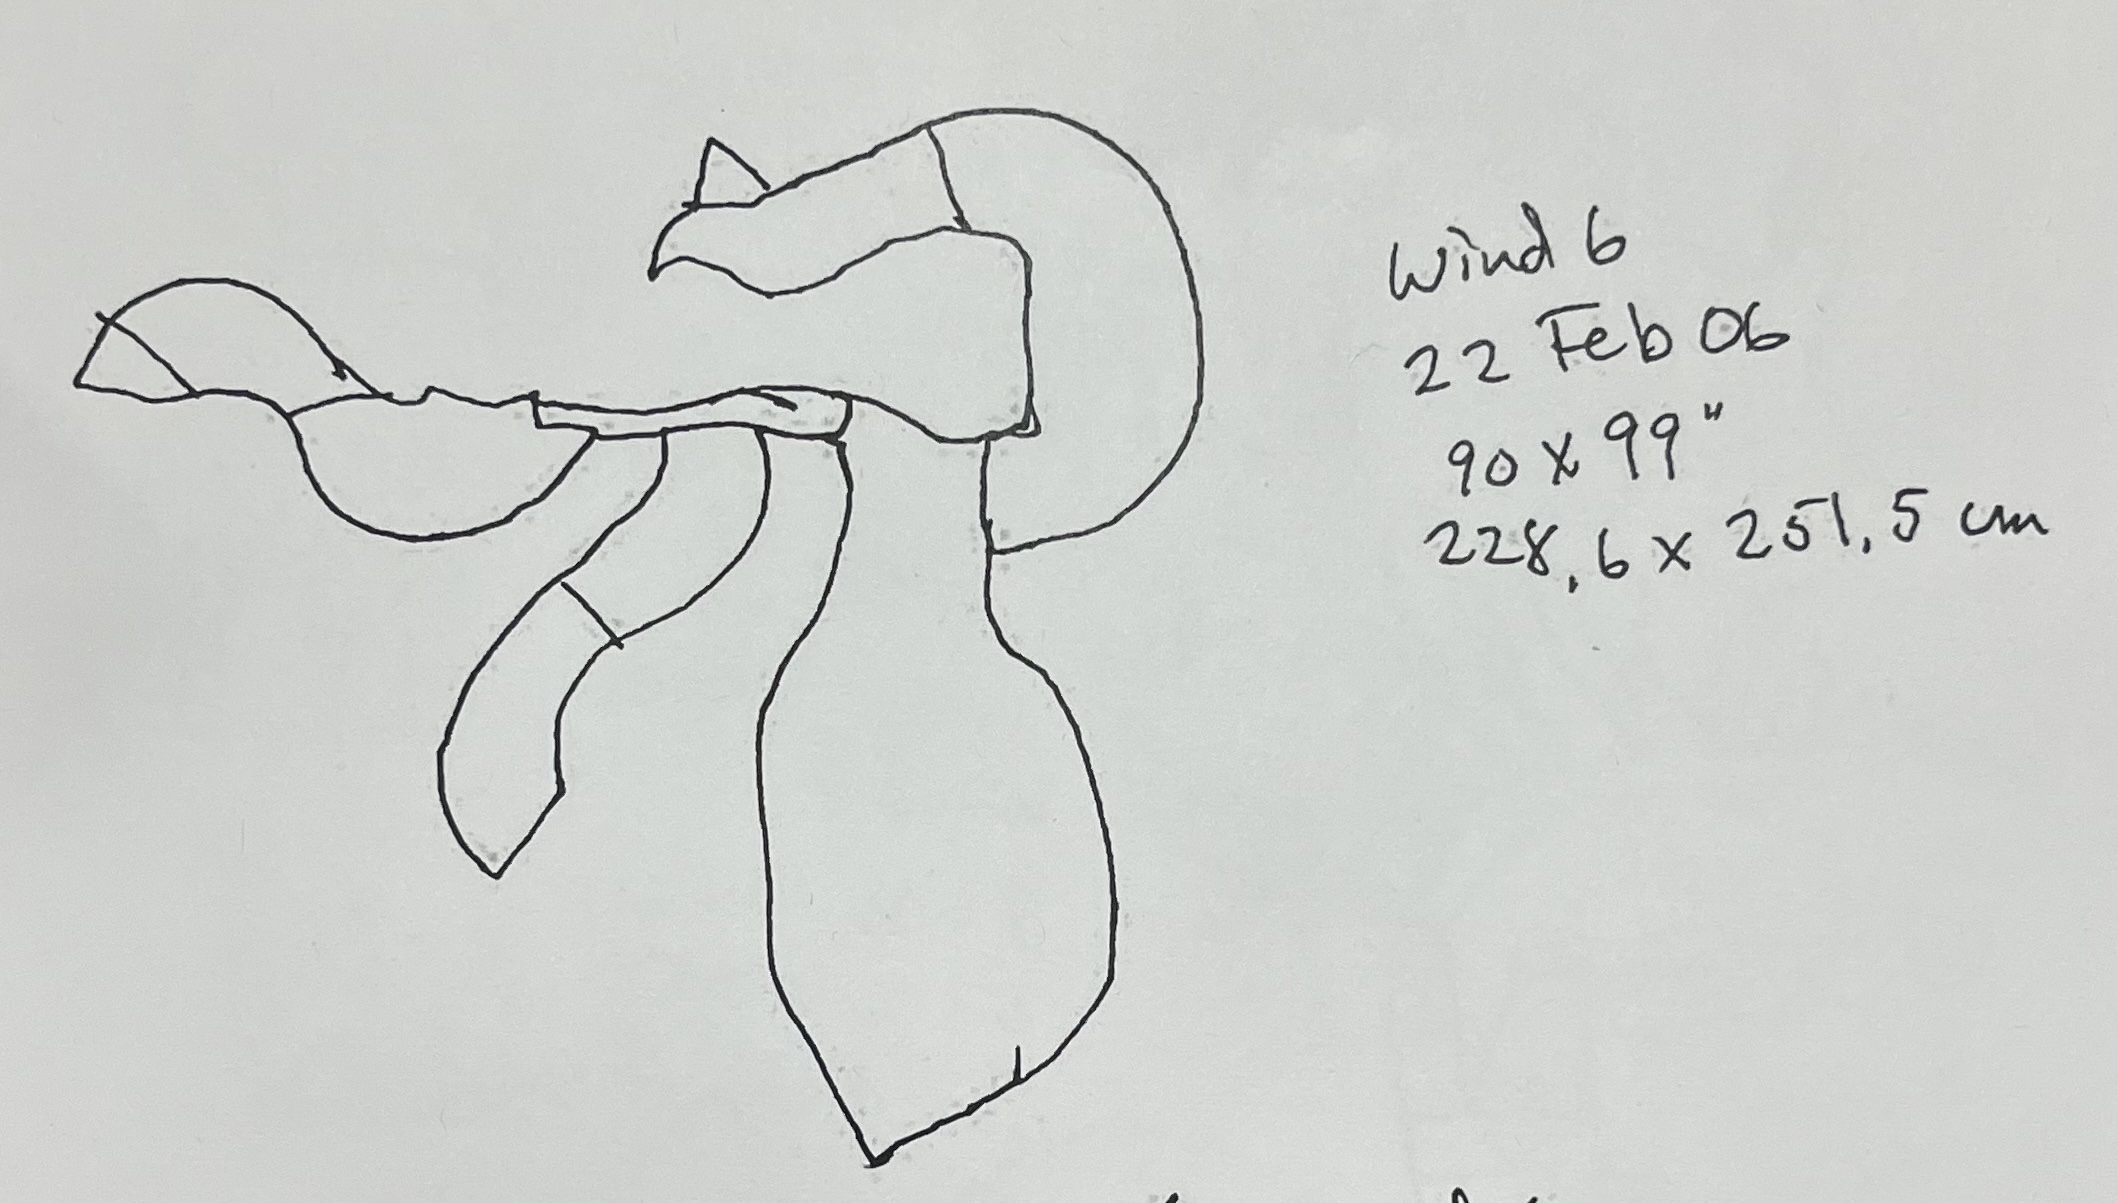 Wind 6
22 Feb 06
90 x 99"
228.6 x 251.5 cm